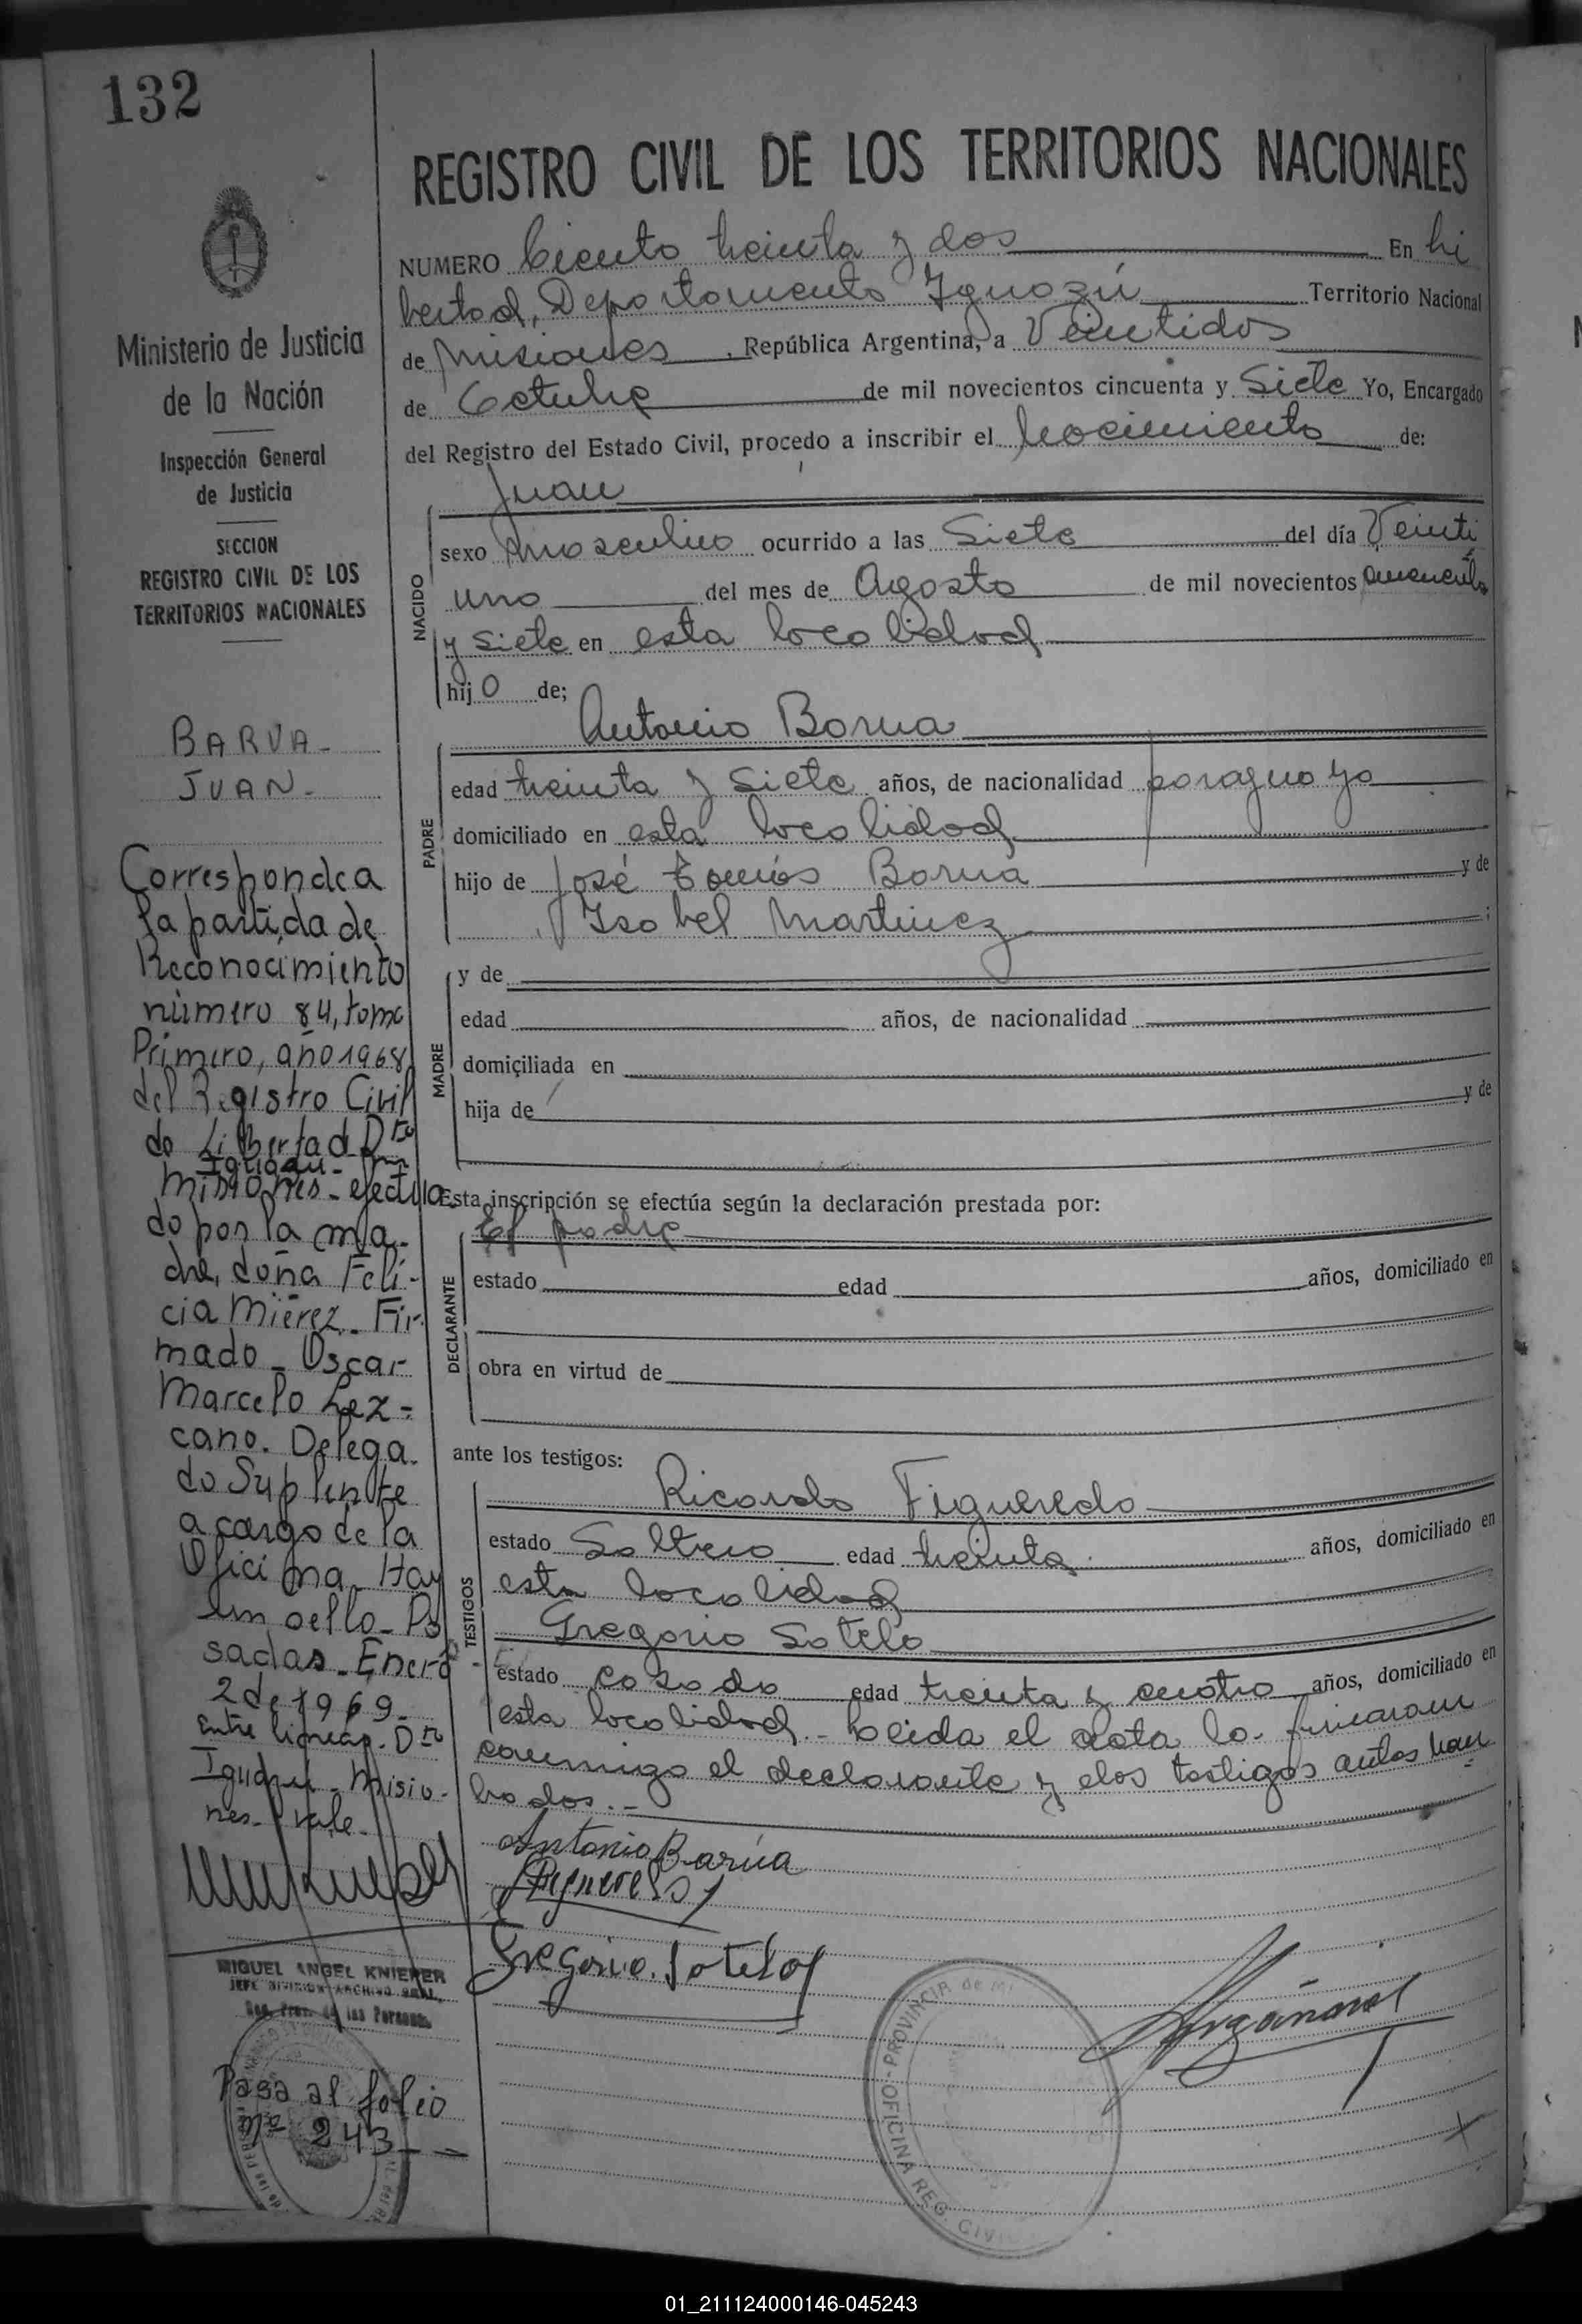 132
Ministerio de Justicia
de la Nación
Inspección General
de Justicia
SECCION
REGISTRO CIVIL DE LOS
TERRITORIOS NACIONALES
BARUA-
JUAN-
Corresponde a
la partida de
Reconocimiento
número 84, tomo
Primero, año 1968
del Registro Civil
de Libertad Dto
Iguazú-
Misiones- efectua
do por la ma-
dre, doña Feli-
cia Mierez- Fir-
mado- Oscar
Marcelo Lez=
cano. Delega-
do Suplente
a cargo de la
Oficina- Hay
un sello- Po
sadas- Enero
2 de 1969-
Entre lineas- Dto
Iguazú- Misio-
nes- vale-
MIGUEL ANGEL KNIEPER
JEFE DIVISION ARCHIVO GRAL.
Reg. Prov. de las Personas
Pasa al folio
Nº 243--
REGISTRO CIVIL DE LOS TERRITORIOS NACIONALES
NUMERO Ciento treinta y dos En Li
bertad, Departamento Iguazú Territorio Nacional
de Misiones, República Argentina, a Veintidos
de Octubre de mil novecientos cincuenta y Siete Yo, Encargado
del Registro del Estado Civil, procedo a inscribir el nacimiento de:
Juan
NACIDO
sexo masculino ocurrido a las Siete del día Veinti
uno del mes de Agosto de mil novecientos cincuenta
y siete en esta localidad
hijo de;
Antonio Barua
PADRE
edad treinta y Siete años, de nacionalidad paraguayo
domiciliado en esta localidad
hijo de José Tomás Barúa y de
Isabel Martinez;
MADRE
y de
edad años, de nacionalidad
domiciliada en
hija de y de
Esta inscripción se efectúa según la declaración prestada por:
El padre
DECLARANTE
estado edad años, domiciliado en
obra en virtud de
ante los testigos:
TESTIGOS
Ricardo Figueredo
estado Soltero edad treinta años, domiciliado en
esta localidad
Gregorio Sotelo
estado casado edad treinta y cuatro años, domiciliado en
esta localidad.- Leida el acta la firmaron
conmigo el declarante y elos testigos antes nom
brados.-
Antonio Barúa
Figueredo
Gregorio. Sotelo
PROVINCIA de Mi
OFICINA REG. CIVIL
01_211124000146-045243